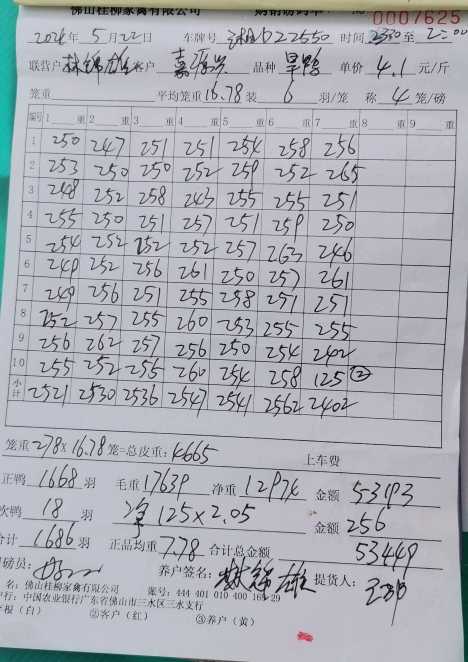 佛山桂柳家禽有限公司 购销磅码单 0007625
2024年5月22日 车牌号 22550 时间 2330至2:00
联营户 林锦雄 客户 嘉 品种 旱鸭 单价 4.1 元/斤
笼重 平均笼重 16.78 装 6 羽/笼 称 4 笼/磅
编号 1 重 2 重 3 重 4 重 5 重 6 重 7 重 8 重 9 重
1 250 247 251 251 254 258 256
2 253 250 250 252 259 252 265
3 248 252 258 243 255 255 251
4 255 250 251 257 251 259 250
5 254 252 252 252 257 263 246
6 249 252 256 261 250 257 261
7 249 256 251 255 258 251 257
8 252 257 255 260 253 255 255
9 256 262 257 256 250 254 242
10 255 252 255 260 254 258 125 ②
小计 2521 2530 2536 2547 2541 2562 2402
笼重 278 x 16.78 笼=总皮重: 4665 上车费
正鸭 1668 羽 毛重 17639 净重 12974 金额 53193
次鸭 18 羽 净 125 x 2.05 金额 256
合计 1686 羽 正品均重 7.78 合计总金额 53449
磅员: 养户签名: 林锦雄 提货人:
名: 佛山桂柳家禽有限公司 账号: 444 401 010 400 165 29
行: 中国农业银行广东省佛山市三水区三水支行
根(白) ②客户(红) ③养户(黄)